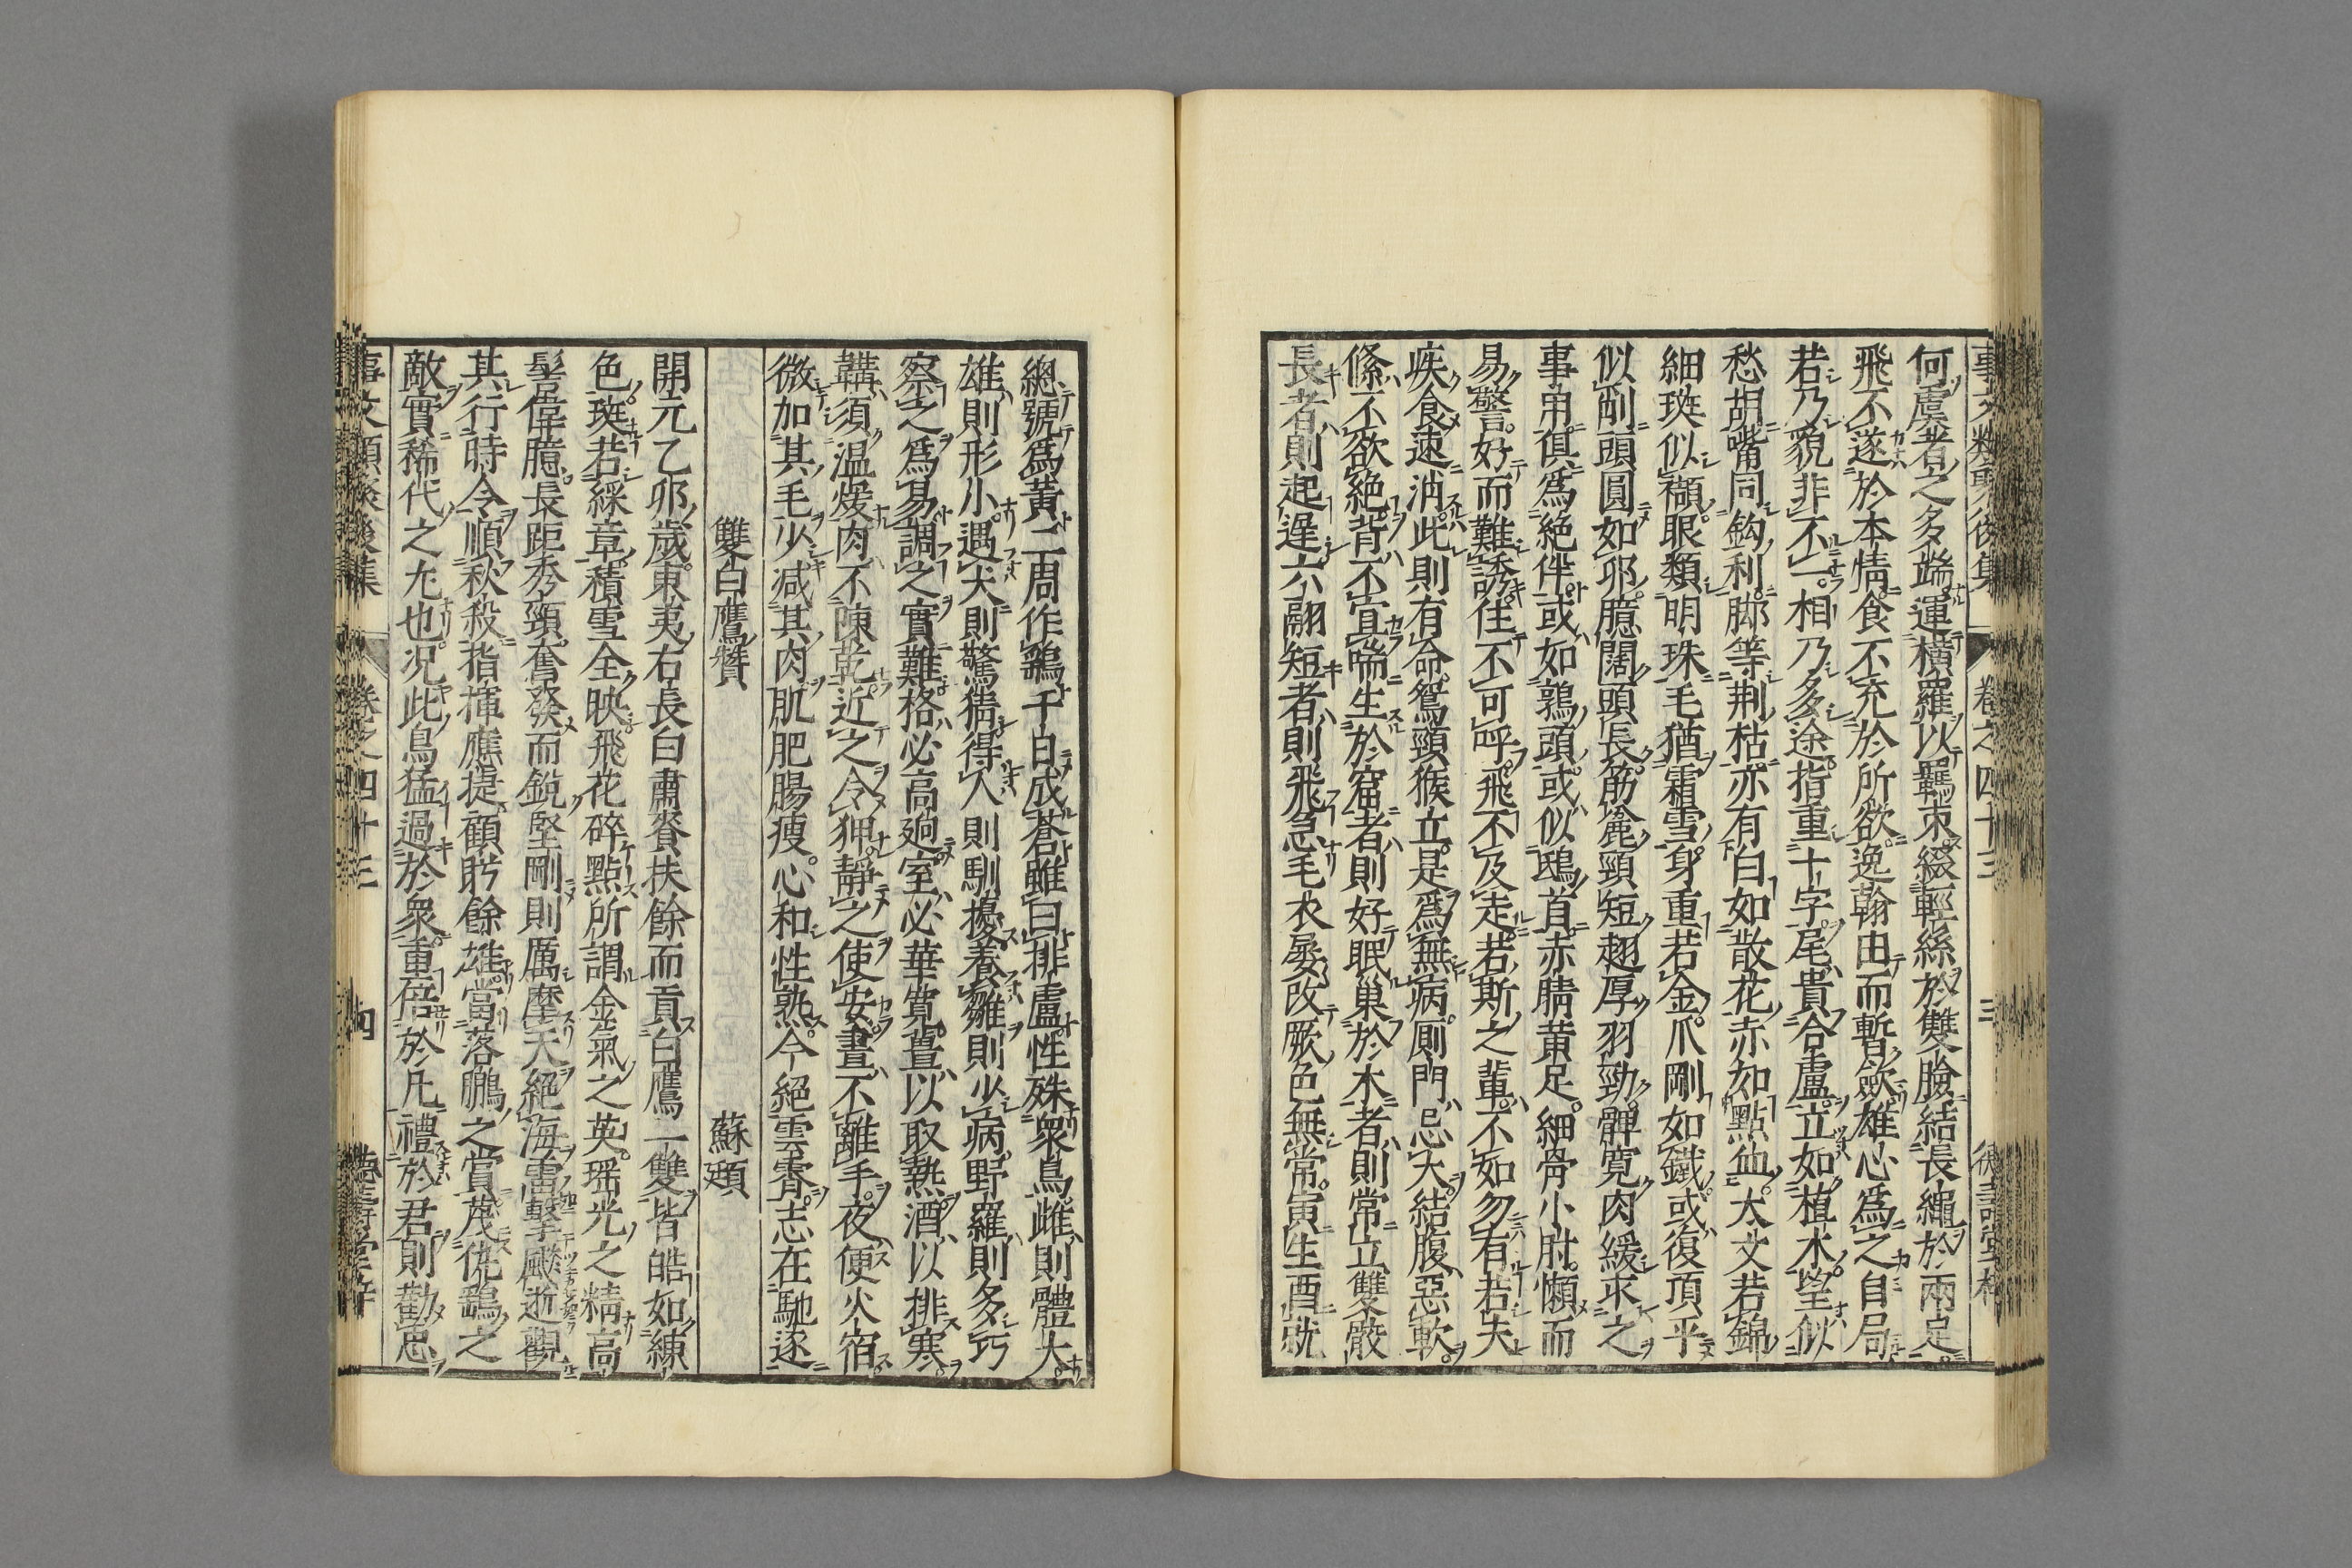 事文類聚後集 卷之四十三 三
何虞者之多端運橫羅以羈束綴輕絲於雙臉結長繩於兩足
飛不遂於本情食不充於所欲逸翰由而暫歛雄心爲之自局
若乃貌非不一相乃多途指重十字尾貴合盧立如植木望似
愁胡觜同鈎利脚等荆枯亦有白如散花赤如點血大文若錦
細斑似纈眼類明珠毛猶霜雪身重若金爪剛如鐵或復頂平
似削頭圓如卵臆闊頭長筋麄頸短翅厚羽勁髀寛肉緩求之
事用俱爲絶伴或如鶉頭或似鴟首赤睛黄足細骨小肘懶而
易驚好而難誘住不可呼飛不及走若斯之輩不如勿有若夫
疾食速消此則有命鴛頸猴立是爲無病厠門忌大結腹惡軟
條不欲絶背不宜喘生於窟者則好眠巢於木者則常立雙骹
長者則起遲六翮短者則飛急毛衣屡改厥色無常寅生酉就
緫號爲黄二周作鷂千日成蒼雖曰排盧性殊衆鳥雌則體大
雄則形小遇犬則驚猜得人則馴擾養雛則少病野羅則多巧
察之爲易調之實難格必高迥室必華寛薑以取熱酒以排寒
鞲須温煖肉不陳乾近之令狎靜之使安晝不離手夜便火宿
微加其毛少减其肉肌肥腸瘦心和性熟今絕雲霄志在馳逐
雙白鷹贊 蘇頲
開元乙卯歲東夷右長曰肅賚扶餘而貢白鷹一雙皆皓如練
色斑若綵章積雪全映飛花碎點所謂金氣之英瑶光之精高
髻偉臆長距秀頸奮發而鋭堅剛則厲摩天絕海雷擊飇逝觀
其行時令順秋殺指揮應捷顧盻餘雄當落鵬之賞蔑仇鷂之
敵實稀代之尤也况此鳥猛過於衆重倍於凡禮於君則勸忠
事文類聚後集 卷之四十三 四